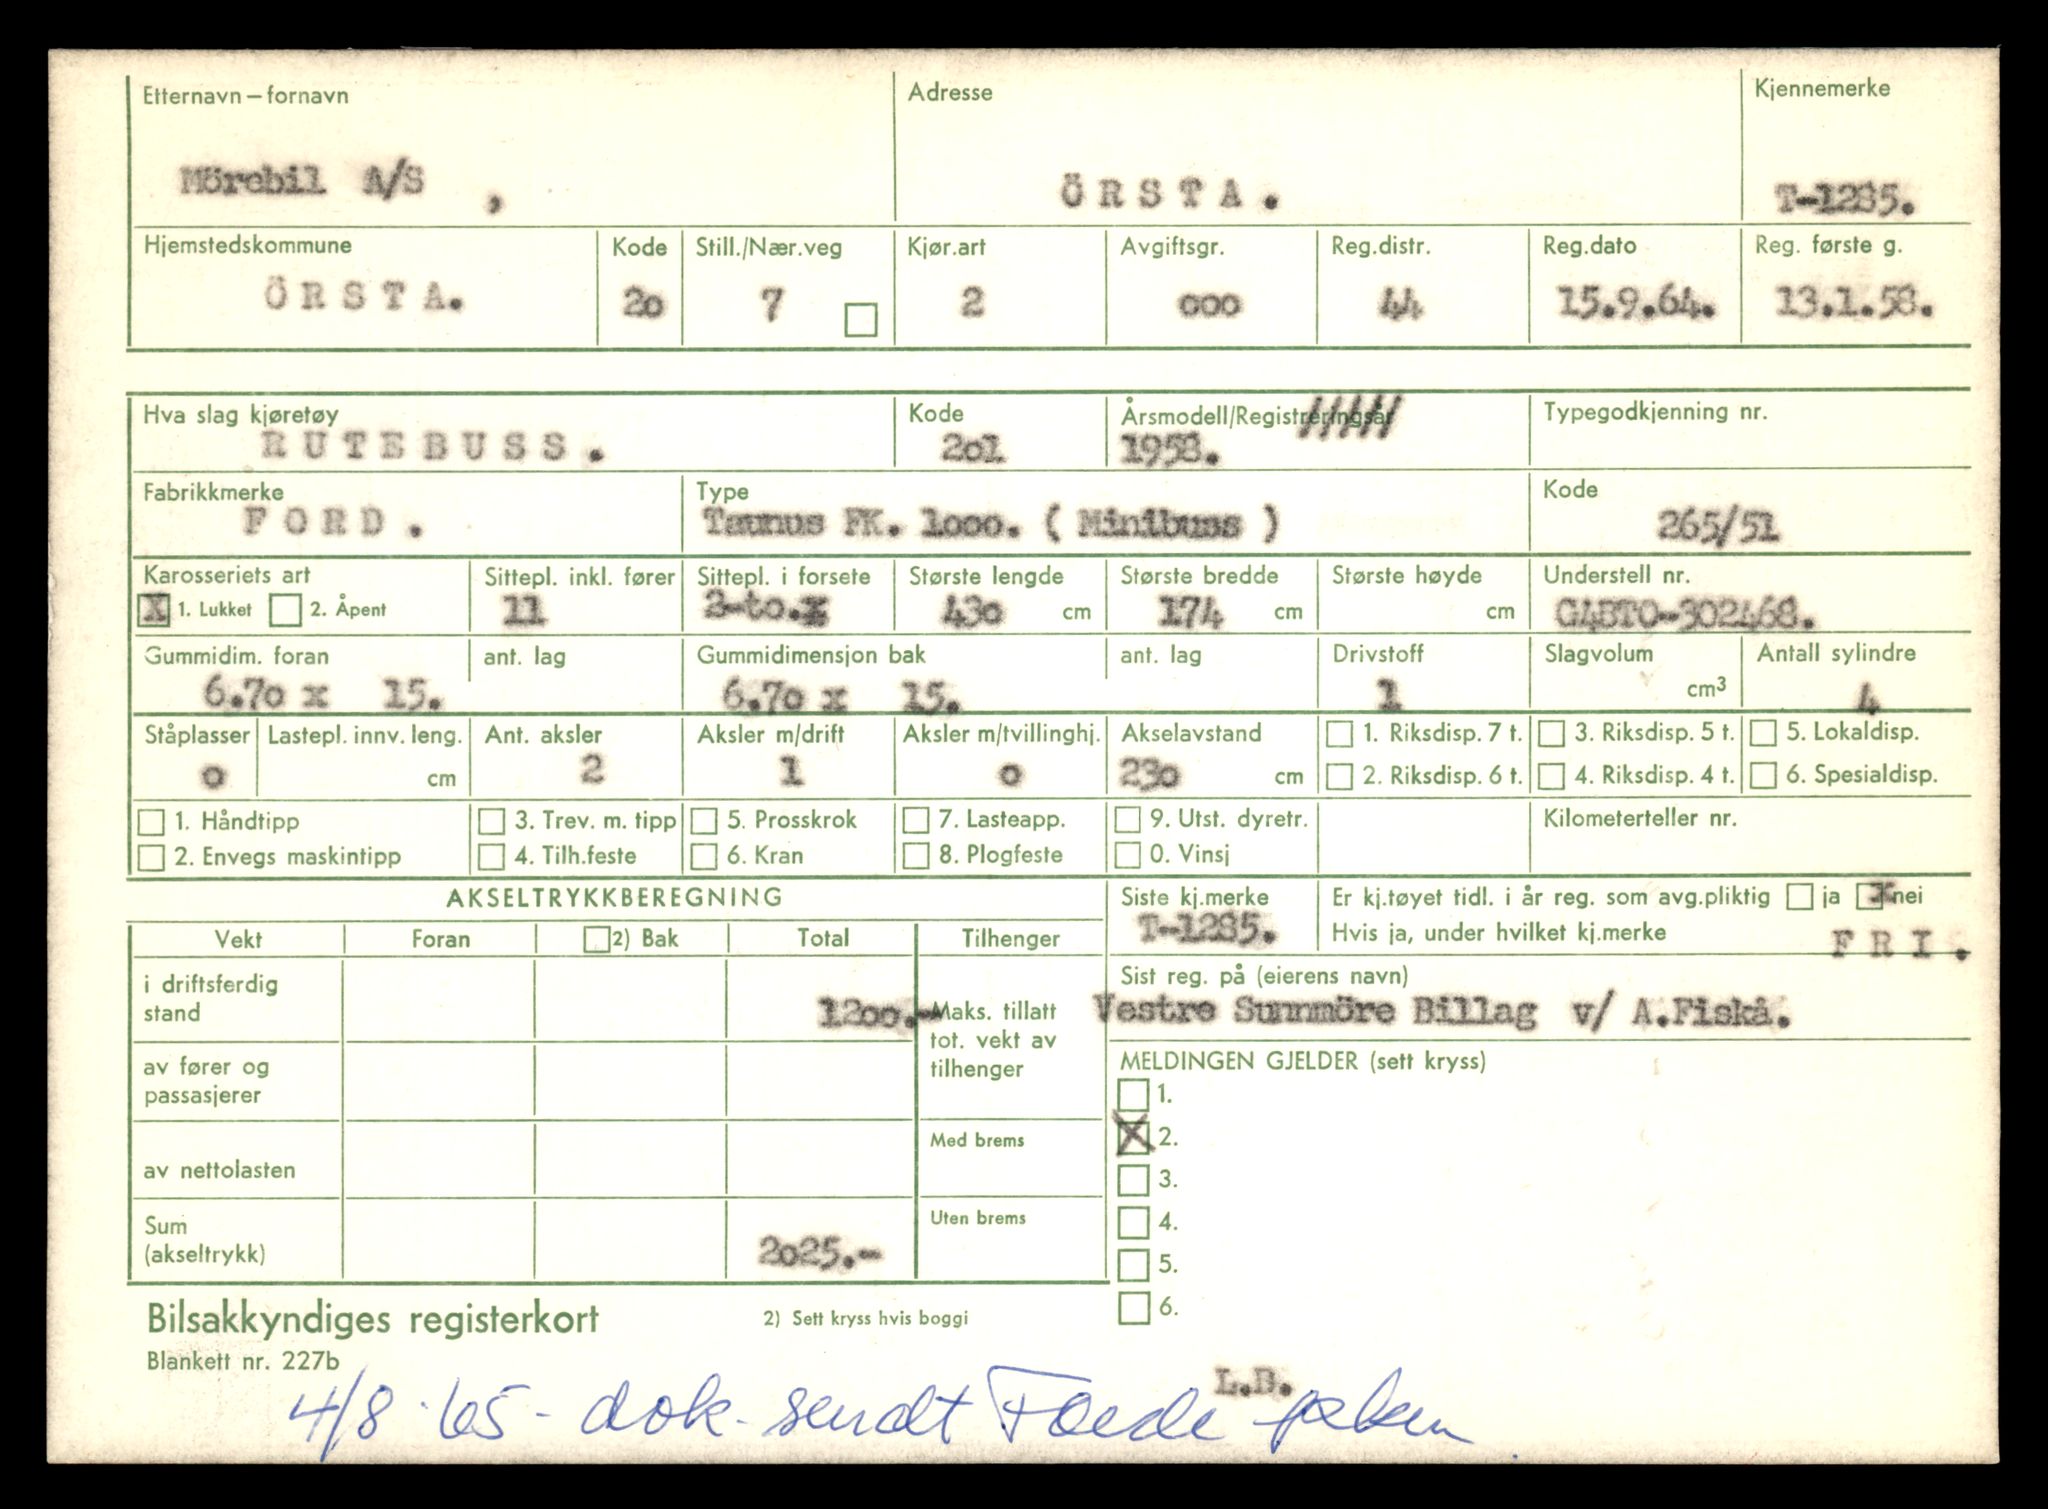 Etternavn — fornavn Adresse Kjennemerke
Mörebil A/S , ÖRSTA. T-1285.
Hjemstedskommune Kode Still./Nær.veg Kjør.art Avgiftsgr. Reg.distr. Reg.dato Reg. første g.
ÖRSTA. 2o 7 2 ooo 44 15.9.64. 13.1.58.
Hva slag kjøretøy Kode Årsmodell/Registreringsår Typegodkjenning nr.
RUTEBUSS. 2o1 1958. /////
Fabrikkmerke Type Kode
FORD. Taunus FK. 1ooo. ( Minibuss ) 265/51
Karosseriets art Sittepl. inkl. fører Sittepl. i forsete Største lengde Største bredde Største høyde Understell nr.
X 1. Lukket 2. Åpent 11 2-to.x 43o cm 174 cm cm G4BTO-302468.
Gummidim. foran ant. lag Gummidimensjon bak ant. lag Drivstoff Slagvolum Antall sylindre
6.7o x 15. 6.7o x 15. 1 cm³ 4
Ståplasser Lastepl. innv. leng. Ant. aksler Aksler m/drift Aksler m/tvillinghj. Akselavstand 1. Riksdisp. 7 t. 3. Riksdisp. 5 t. 5. Lokaldisp.
o cm 2 1 o 23o cm 2. Riksdisp. 6 t. 4. Riksdisp. 4 t. 6. Spesialdisp.
1. Håndtipp 3. Trev. m. tipp 5. Prosskrok 7. Lasteapp. 9. Utst. dyretr. Kilometerteller nr.
2. Envegs maskintipp 4. Tilh.feste 6. Kran 8. Plogfeste 0. Vinsj
AKSELTRYKKBEREGNING Siste kj.merke Er kj.tøyet tidl. i år reg. som avg.pliktig ja X nei
Vekt Foran 2) Bak Total Tilhenger T-1285. Hvis ja, under hvilket kj.merke FRI.
i driftsferdig stand 12oo.- Maks. tillatt tot. vekt av tilhenger
Sist reg. på (eierens navn)
Vestre Sunnmöre Billag v/ A.Fiskå.
av fører og passasjerer
MELDINGEN GJELDER (sett kryss)
1.
av nettolasten Med brems X 2.
3.
Sum (akseltrykk) 2o25.- Uten brems 4.
5.
6.
Bilsakkyndiges registerkort 2) Sett kryss hvis boggi
Blankett nr. 227b
L.B.
4/8.65 - dok. sendt Førde